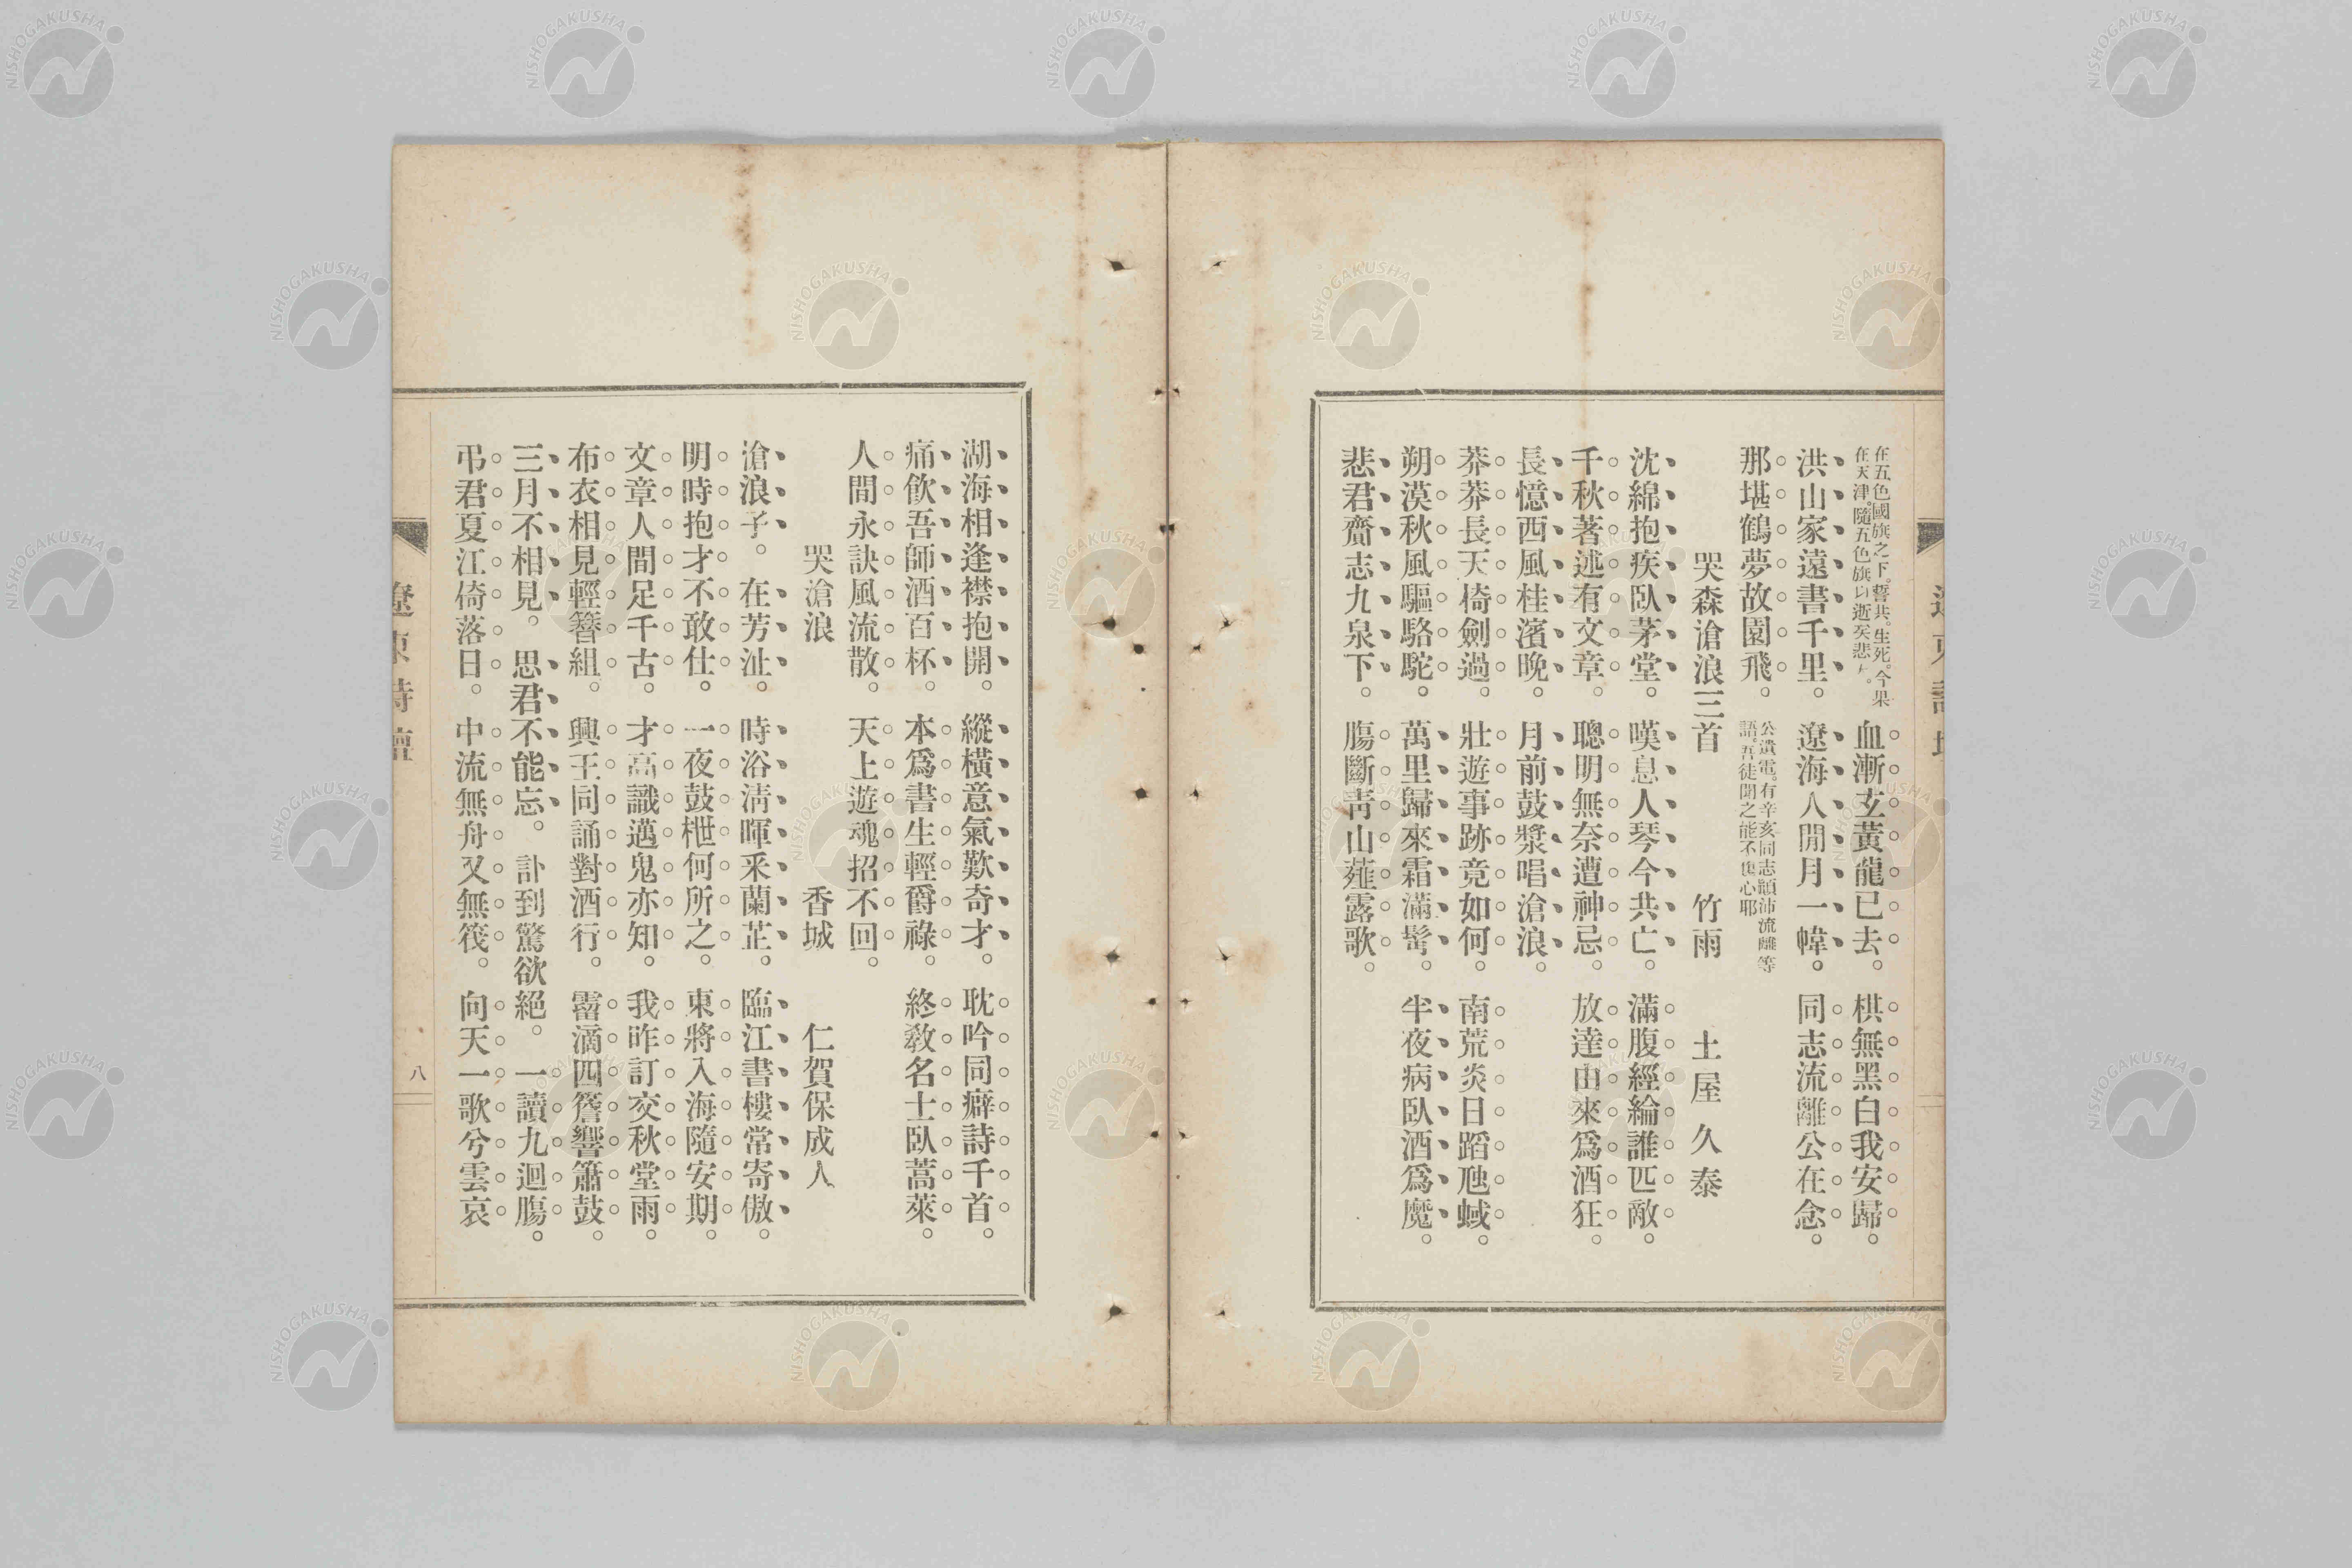 在五色國旗之下。誓共。生死。今果
在天津。隨五色旗以逝矣悲夫。
血漸玄黃龍已去。栱無黑白我安歸。
洪山家遠書千里。遼海人閒月一幃。同志流離公在念。
那堪鶴夢故園飛。
公遺電。有辛亥同志顚沛流離等
語。吾徒聞之能不傷心耶
哭森滄浪三首 竹雨 土屋久泰
沈綿抱疾臥茅堂。嘆息人琴今共亡。滿腹經綸誰匹敵。
千秋著述有文章。聰明無奈遭神忌。放達由來爲酒狂。
長憶西風桂濱晚。月前鼓漿唱滄浪。
莽莽長天倚劍過。壯遊事跡竟如何。南荒炎日蹈虺蜮。
朔漠秋風驅駱駝。萬里歸來霜滿髩。半夜病臥酒爲魔。
悲君齎志九泉下。膓斷靑山薤露歌。
遼東詩壇
湖海相逢襟抱開。縱橫意氣歎奇才。耽吟同癖詩千首。
痛飮吾師酒百杯。本爲書生輕爵祿。終敎名士臥蒿萊。
人間永訣風流散。天上遊魂招不回。
哭滄浪 香城 仁賀保成人
滄浪子。在芳沚。時浴淸暉釆蘭芷。臨江書樓常寄傲。
明時抱才不敢仕。一夜鼓枻何所之。東將入海隨安期。
文章人間足千古。才高識邁鬼亦知。我昨訂交秋堂雨。
布衣相見輕簪組。興王同誦對酒行。霤滴四簷響簫鼓。
三月不相見。思君不能忘。訃到驚欲絕。一讀九迴膓。
弔君夏江倚落日。中流無舟又無筏。向天一歌兮雲哀
遼東詩壇
八
NISHOGAKUSHA